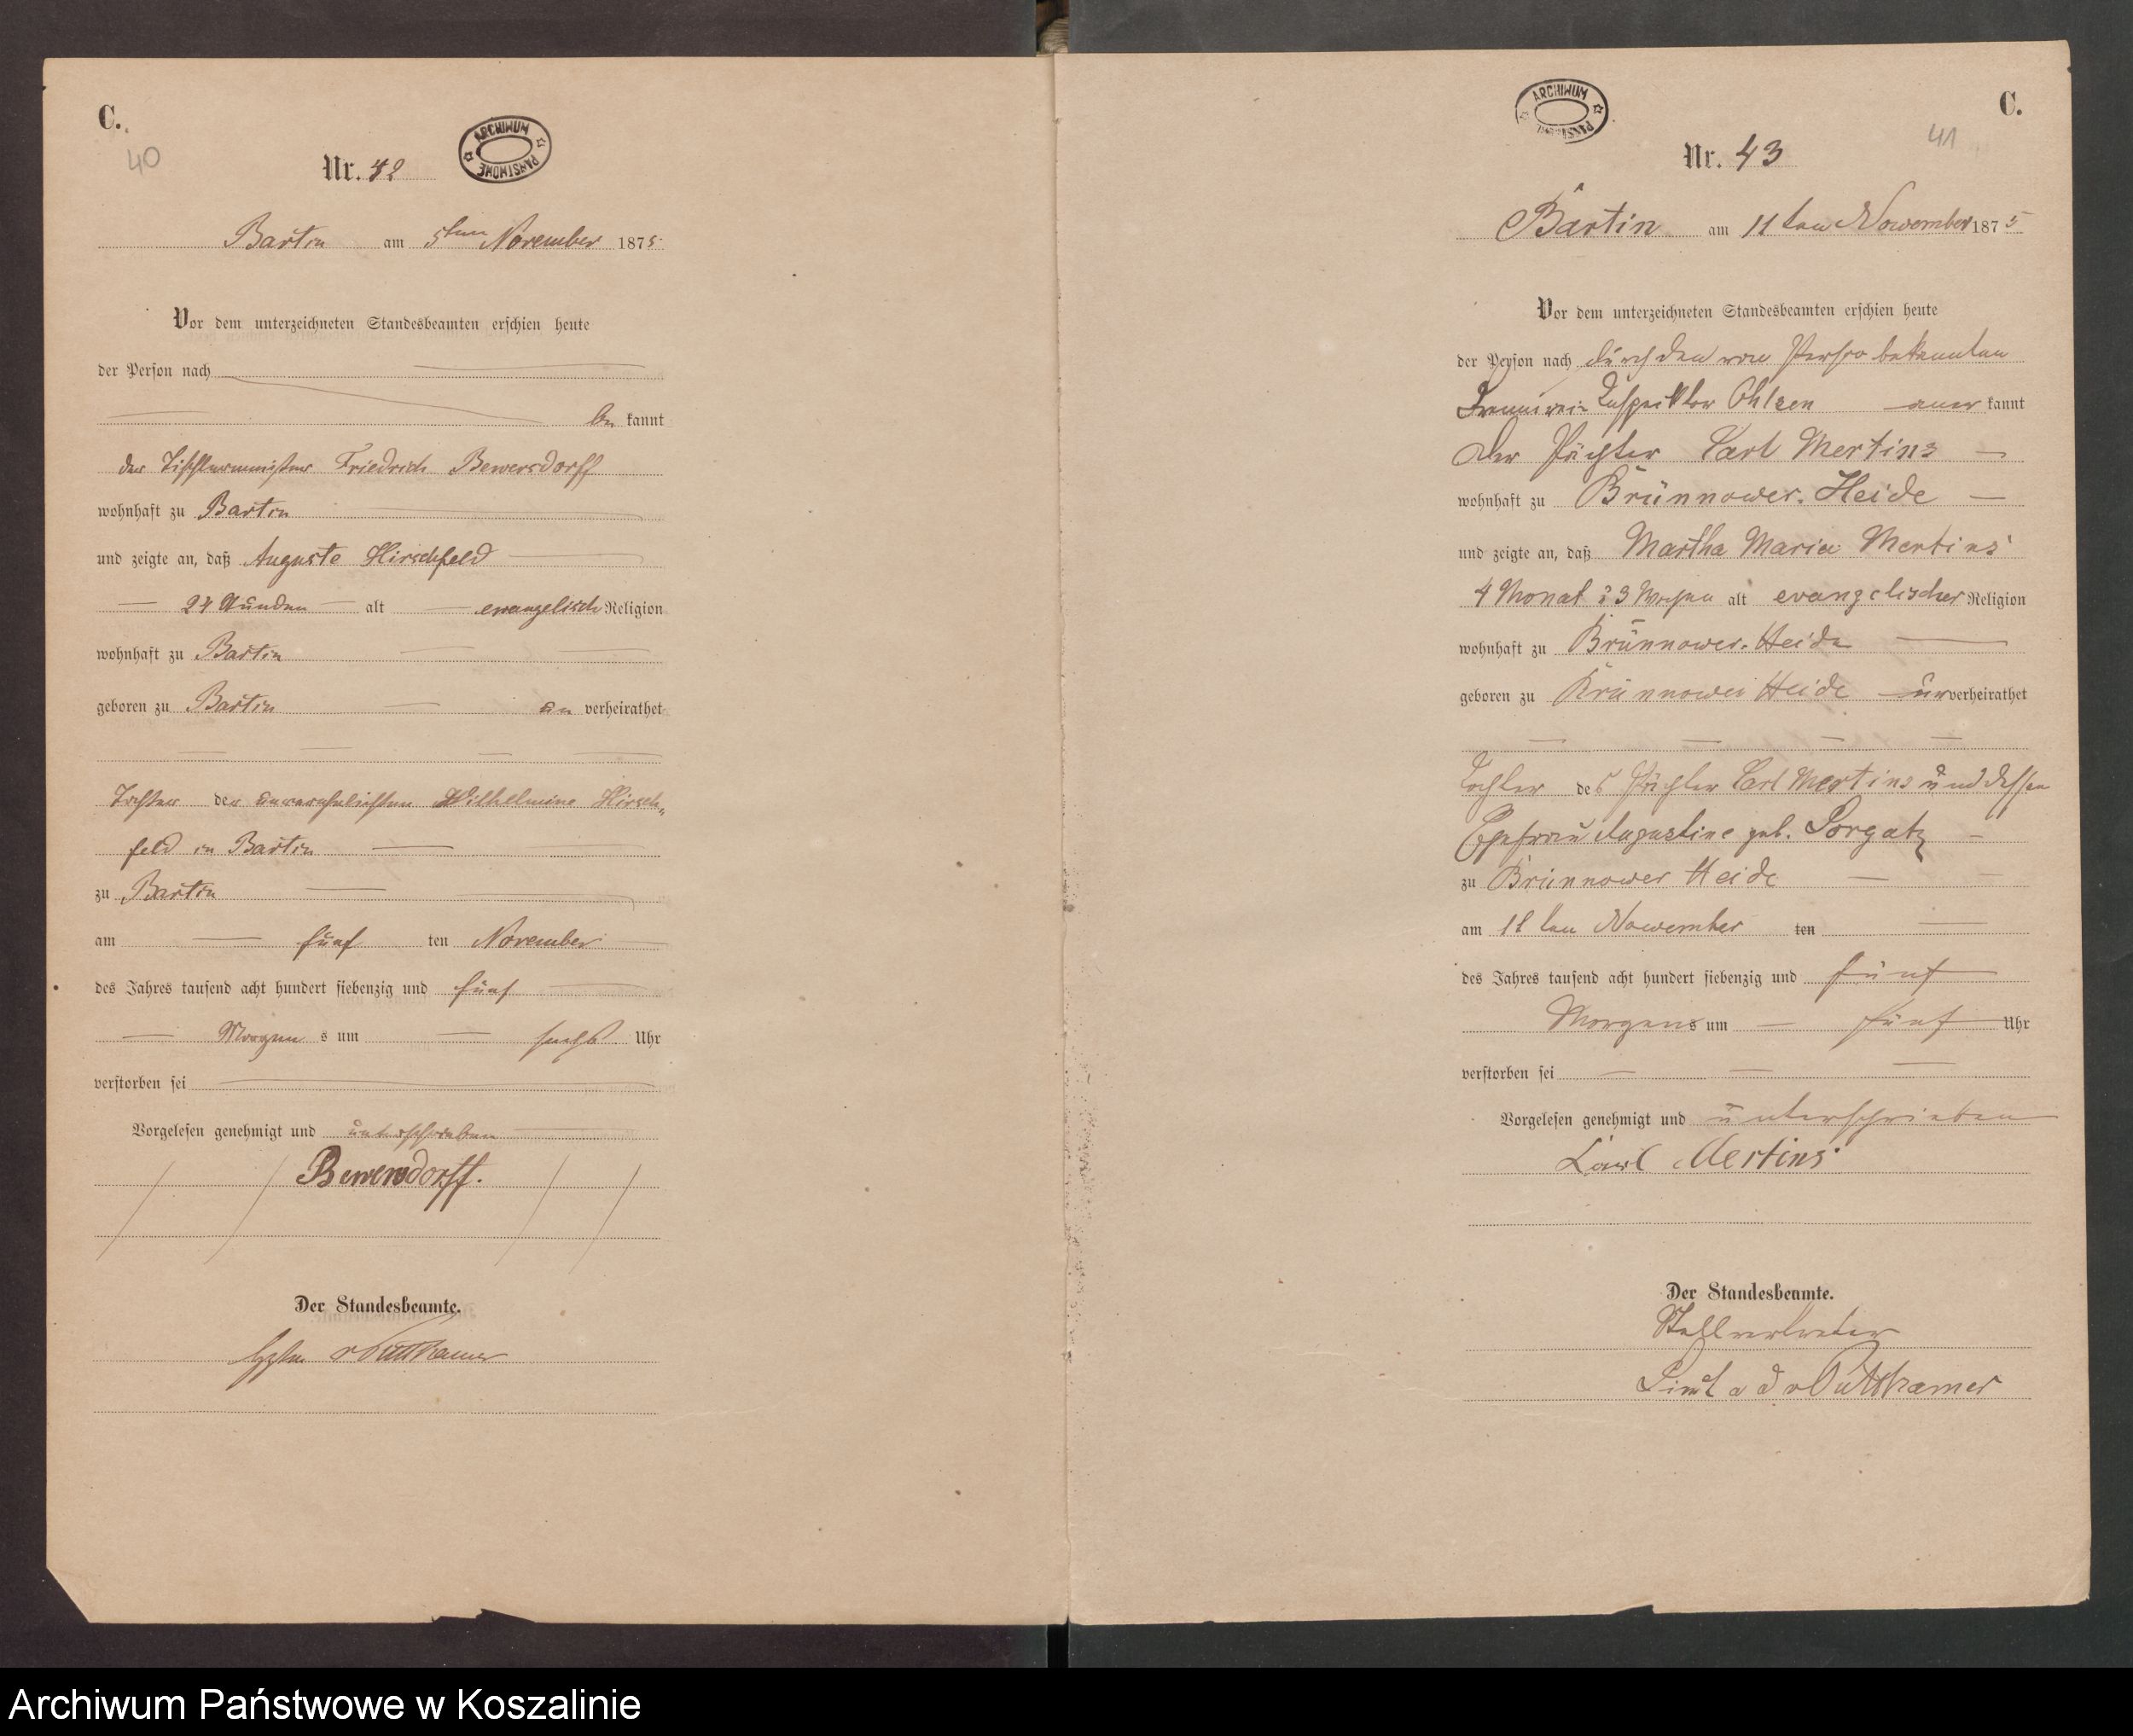 C.
40
Nr. 42
ARCHIWUM PAŃSTWOWE
Bartin am 5ten November 1875
Vor dem unterzeichneten Standesbeamten erschien heute
der Person nach
be kannt
der Tischlermeister Friedrich Bewersdorff
wohnhaft zu Bartin
und zeigte an, daß Auguste Hirschfeld
24 Stunden alt evangelisch Religion
wohnhaft zu Bartin
geboren zu Bartin un verheirathet
Tochter der unverehelichten Wilhelmine Hirsch-
feld in Bartin
zu Bartin
am fünf ten November
des Jahres tausend acht hundert siebenzig und fünf
Morgen s um sechs Uhr
verstorben sei
Vorgelesen genehmigt und unterschrieben
Bewersdorff.
Der Standesbeamte.
v Puttkamer
C.
41
ARCHIWUM PAŃSTWOWE
Nr. 43
Bartin am 11ten November 1875
Vor dem unterzeichneten Standesbeamten erschien heute
der Person nach durch den von Person bekannten
Inspektor Ohlsen aner kannt
der Pächter Carl Mertins
wohnhaft zu Brünnower-Heide
und zeigte an, daß Martha Maria Mertins
4 Monat 3 Wochen alt evangelischer Religion
wohnhaft zu Brünnower-Heide
geboren zu Brünnower Heide unverheirathet
Tochter des Pächter Carl Mertins und dessen
Ehefrau Augustine geb. Sorgatz
zu Brünnower Heide
am 11 ten November ten
des Jahres tausend acht hundert siebenzig und fünf
Morgens um fünf Uhr
verstorben sei
Vorgelesen genehmigt und unterschrieben
Carl Mertins
Der Standesbeamte.
Stellvertreter
a d v Puttkamer
Archiwum Państwowe w Koszalinie